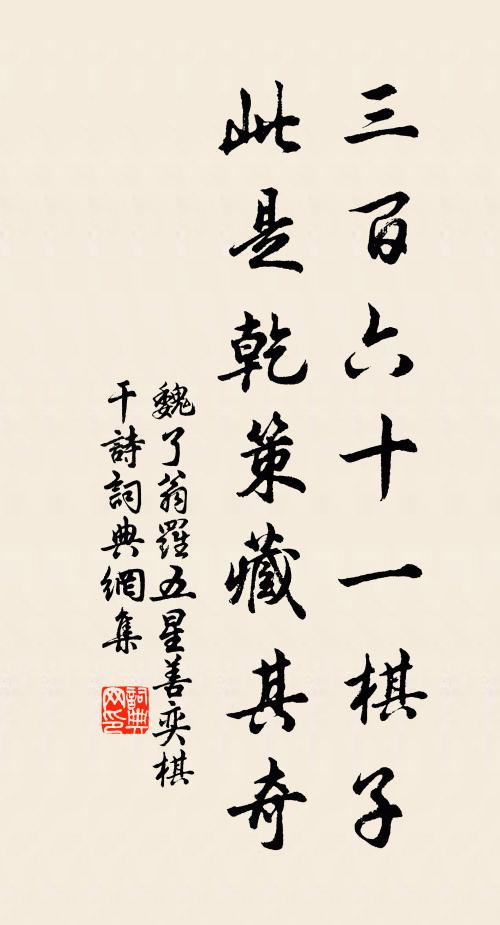 三百六十一棋子
此是乾策藏其奇
魏了翁羅五星善奕棋
干詩詞典網集
詞典網印